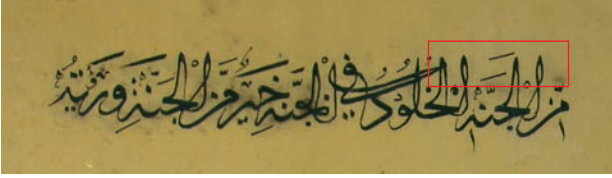 من الجنة الخلود في الجنة خير من الجنة